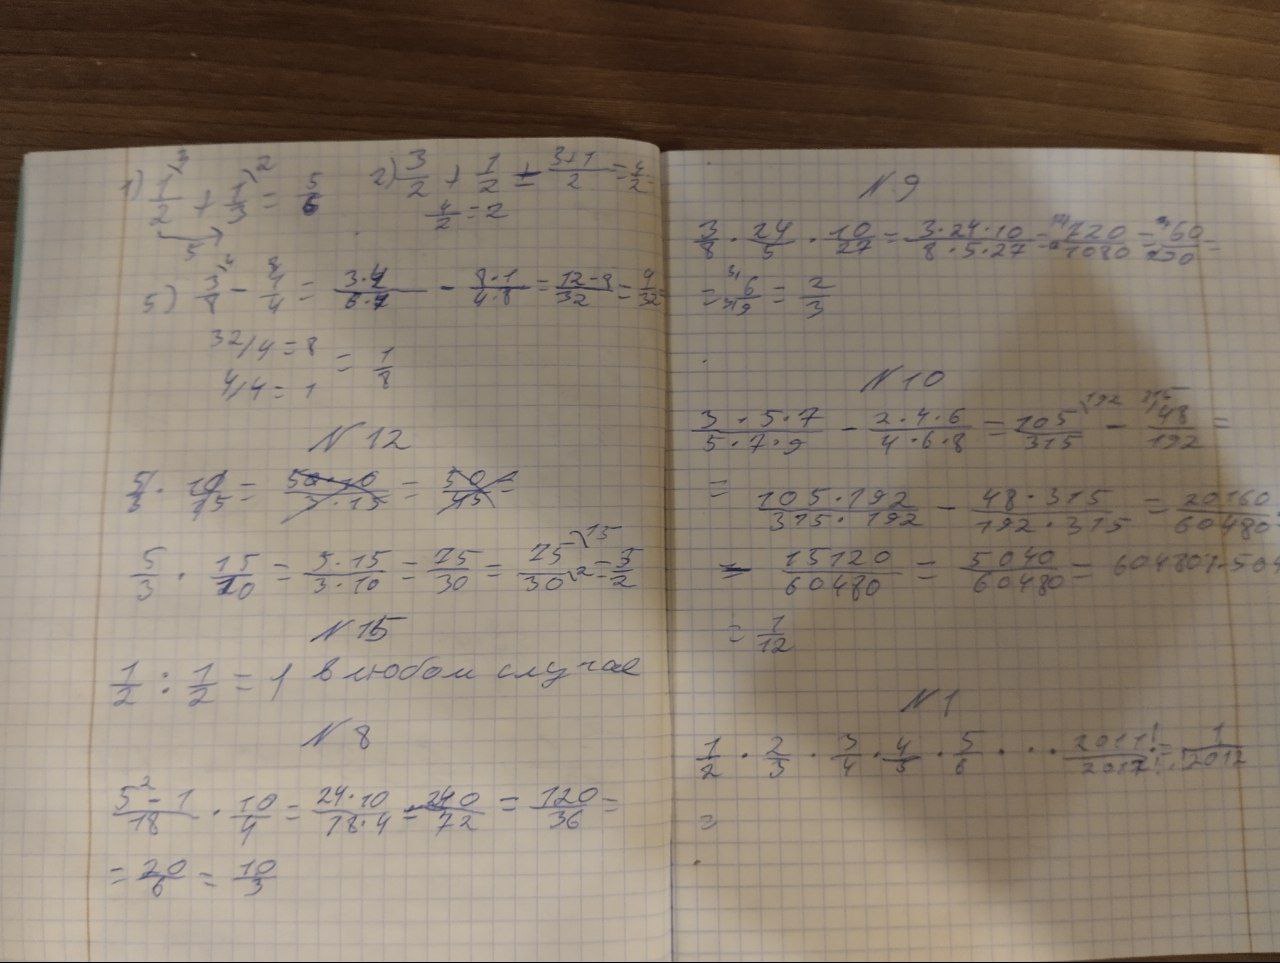 1) 1/2 + 1/3 = 5/6
2) 3/2 + 1/2 = 3+1/2 = 4/2 =
4/2 = 2
5
5) 3/8 - /4 = 3·4/ - 8·1/4·8 = 12-8/32 = 4/32 =
32/4 = 8
= 1/8
4/4 = 1
N12
5/3 · 15/10 = 5·15/3·10 = 75/30 = 75/30 = 5/2
N15
1/2 : 1/2 = 1 в любом случае
N8
5²-1/18 · 10/4 = 24·10/18·4 = 240/72 = 120/36 =
= 20/6 = 10/3
N9
3/8 · 24/5 · 10/27 = 3·24·10/8·5·27 = 720/1080 = 60/ =
= 6/9 = 2/3
N10
3·5·7/5·7·9 - 2·4·6/4·6·8 = 105/315 - 48/192 =
= 105·192/315·192 - 48·315/192·315 = 20160/60480
= 15120/60480 = 5040/60480 = 60480
= 1/12
N1
1/2 · 2/3 · 3/4 · 4/5 · 5/6 · ... 2011!/ = 1/2012
=